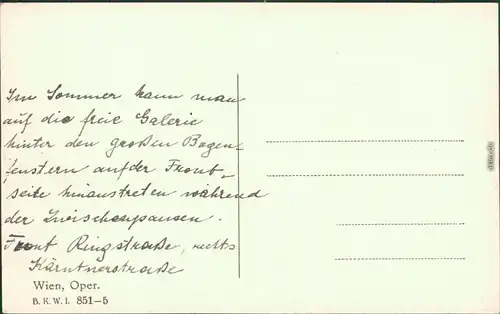 Im Sommer kann man
auf die freie Galerie
hinter den großen Bogen-
fenstern auf der Front-
seite hinaustreten während
der Zwischenpausen.
Front Ringstraße, rechts
Kärntnerstraße
Wien, Oper.
B. K. W. I. 851–5